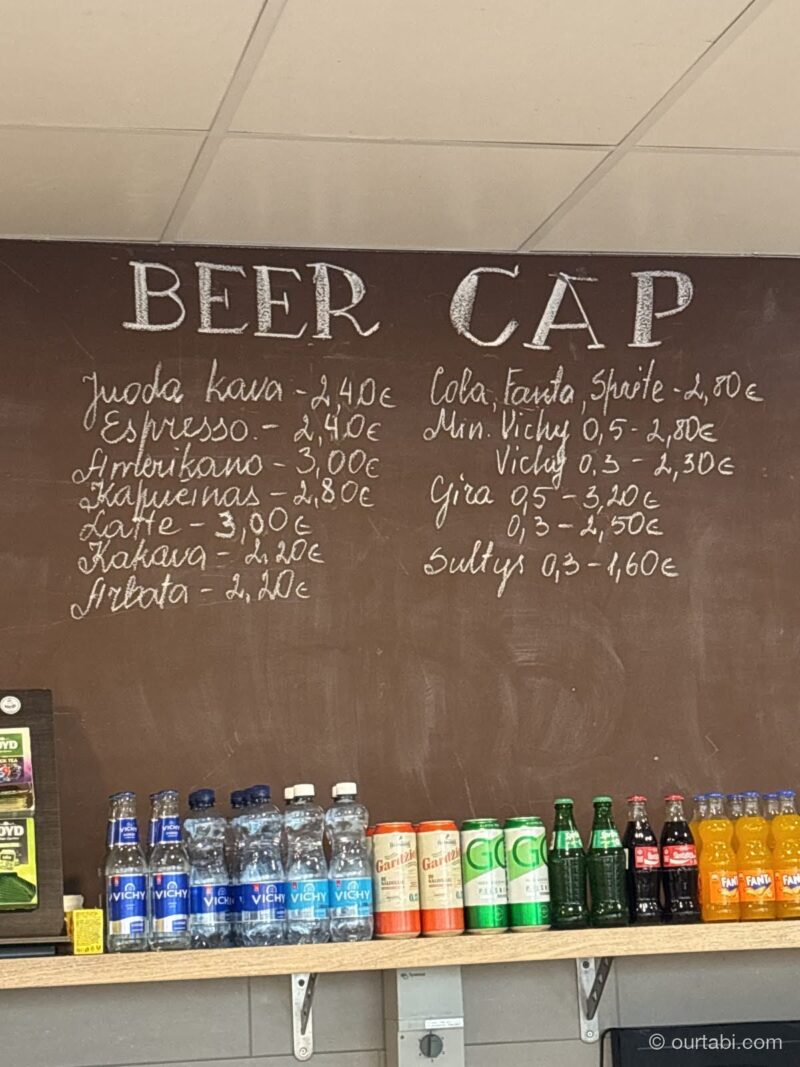 BEER CAP
Juoda kava - 2,40€
Espresso. - 2,40€
Amerikano - 3,00€
Kapucinas - 2,80€
Latte - 3,00€
Kakava - 2,20€
Arbata - 2,20€
Cola, Fanta, Sprite - 2,80€
Min. Vichy 0,5 - 2,80€
Vichy 0,3 - 2,30€
Gira 0,5 - 3,20€
0,3 - 2,50€
Sultys 0,3 - 1,60€
OYD
OYD
VICHY
VICHY
VICHY
VICHY
VICHY
VICHY
VICHY
VICHY
Gardži
Gardži
GO
GO
FANTA
© ourtabi.com